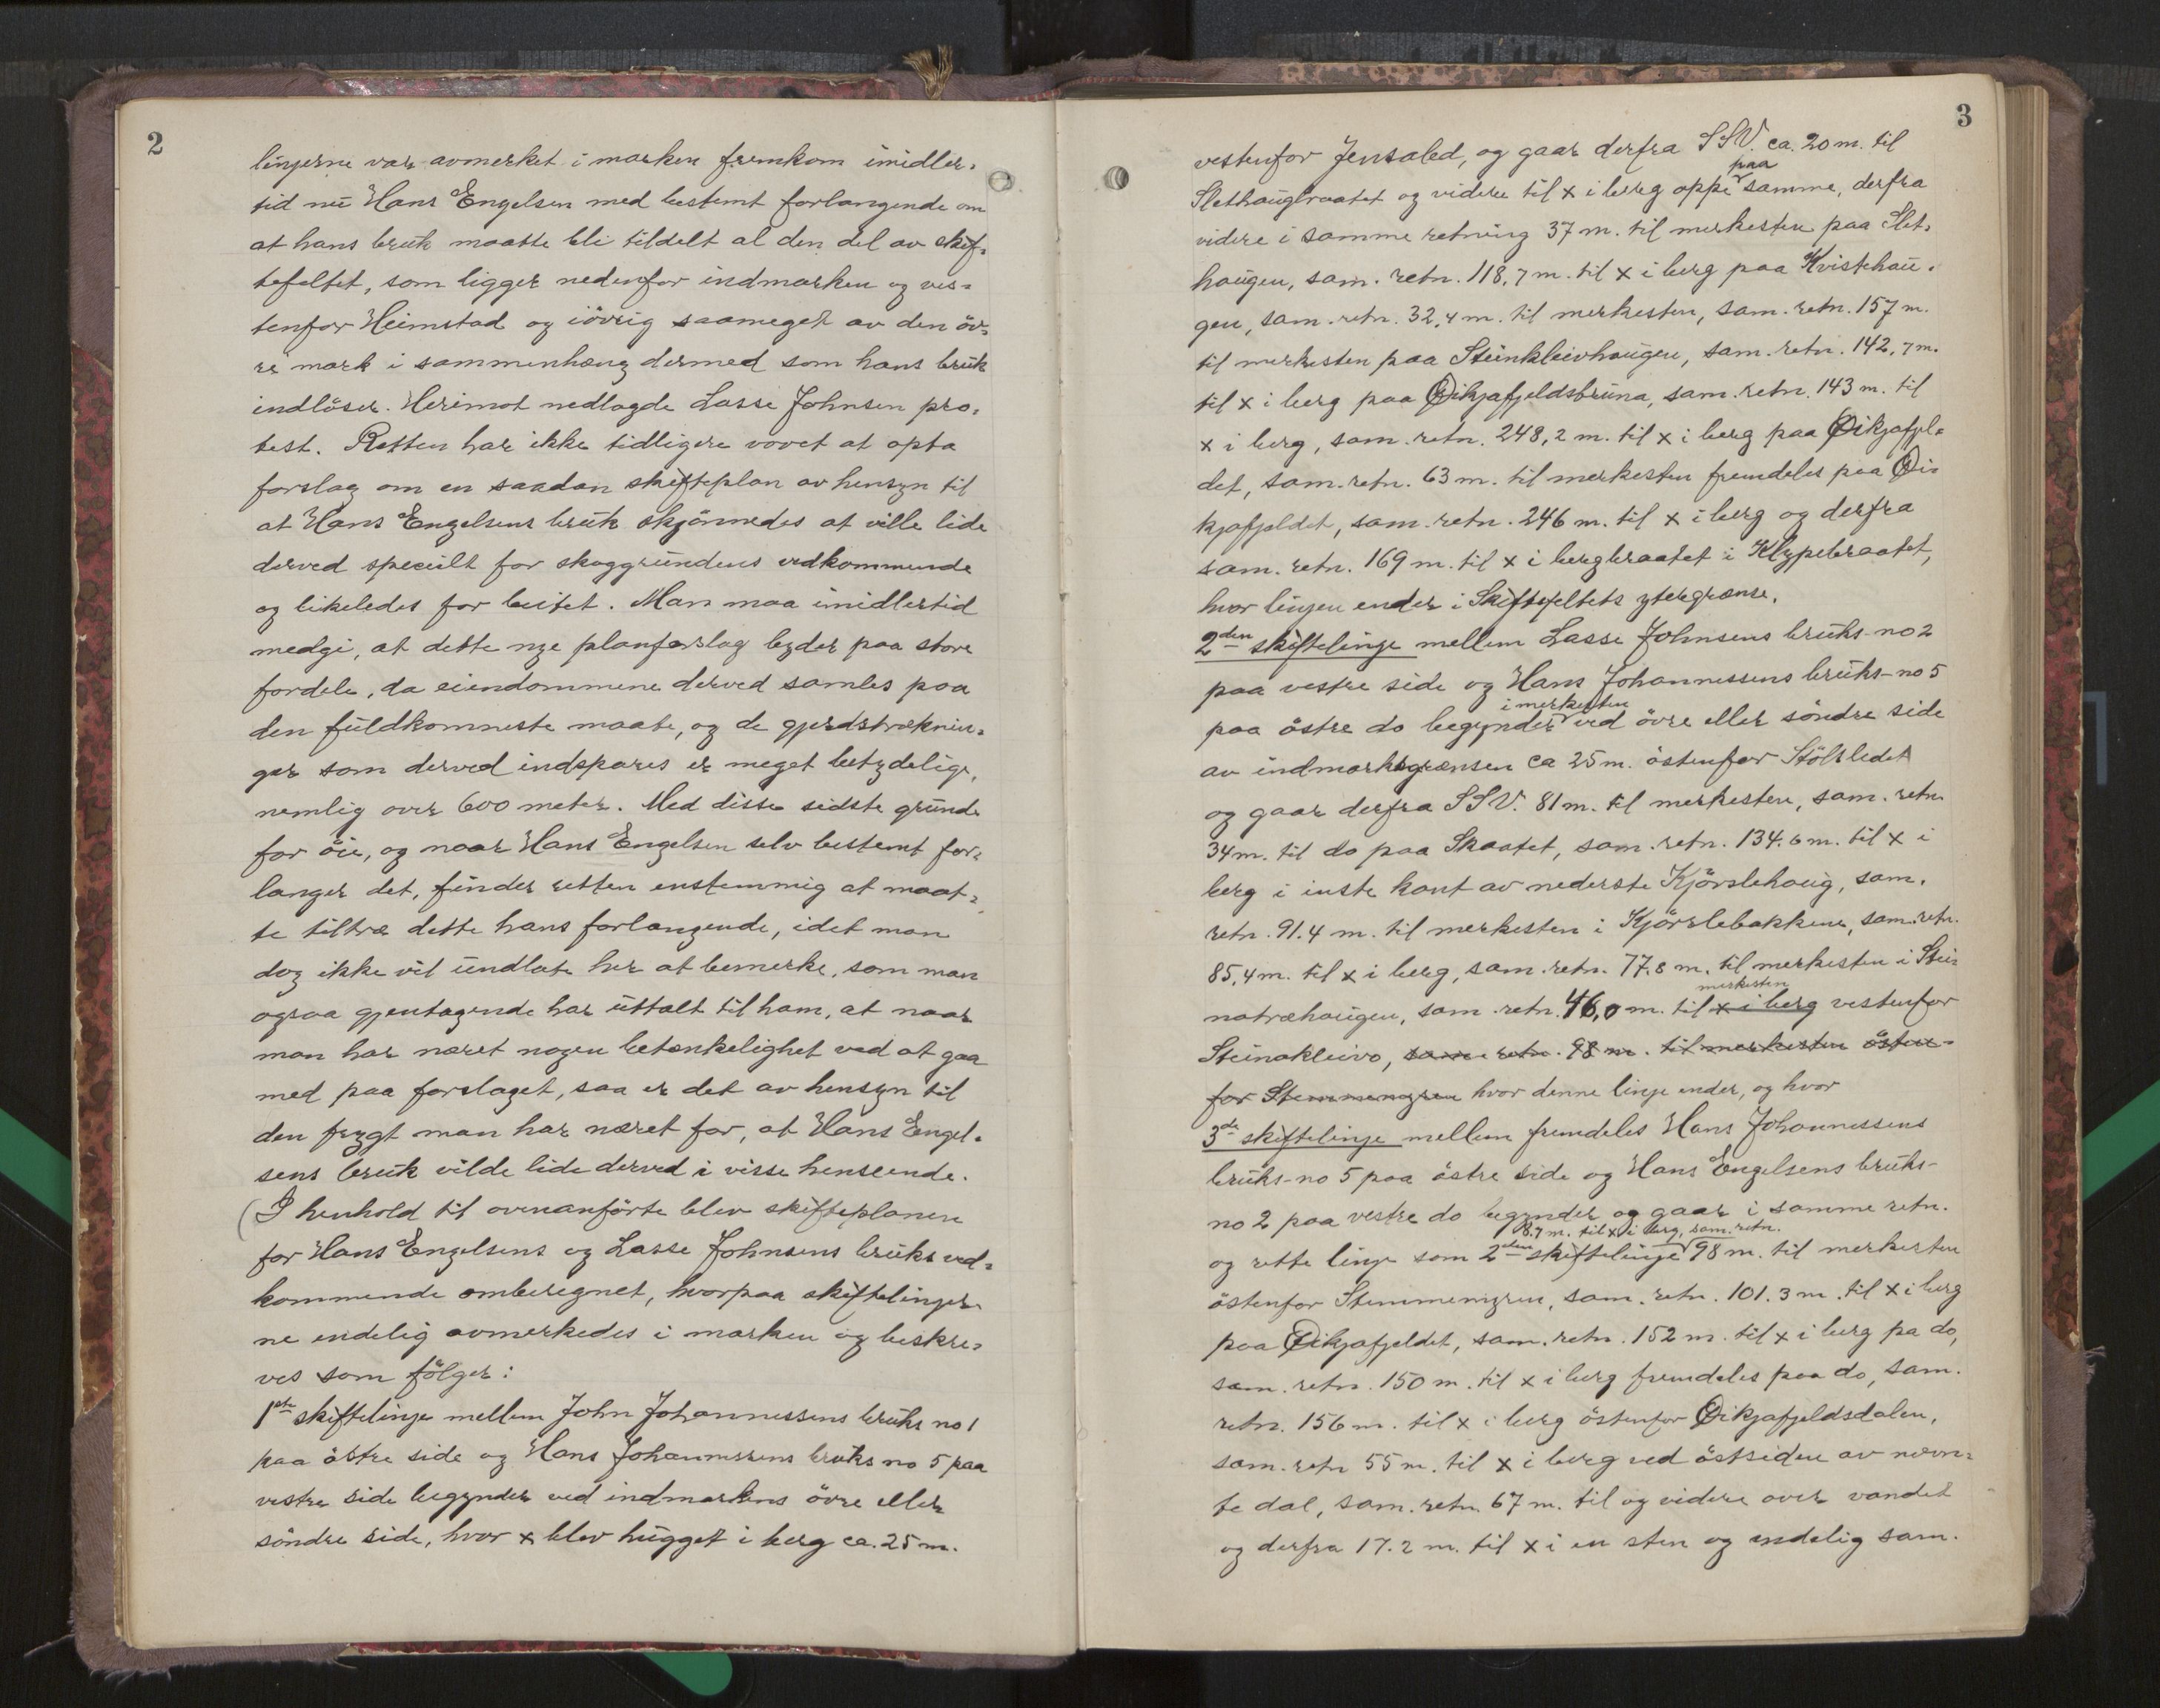 2
linjerne var avmerket i marken fremkom imidler-
tid nu Hans Engelsen med bestemt forlangende om
at hans bruk maatte bli tildelt al den del av skif-
tefeltet, som ligger nedenfor indmarken og ves-
tenfor Heimstad og iövrig saameget av den öv-
re mark i sammenhæng dermed som hans bruk
indlöser. Herimot nedlagde Lasse Johnsen pro-
test. Retten har ikke tidligere vovet at opta
forslag om en saadan skifteplan av hensyn til
at Hans Engelsens bruk skjönnedes at ville lide
derved specielt for skoggrundens vedkommende
og likeledes for beitet. Man maa imidlertid
medgi, at dette nye planforslag byder paa store
fordele, da eiendommene derved samles paa
den fuldkomneste maate, og de gjerdstræknin-
ger som derved indspares er meget betydelige,
nemlig over 600 meter. Med disse sidste grunde
for öie, og naar Hans Engelsen selv bestemt for-
langer det, finder retten enstemmig at maat-
te tiltræ dette hans forlangende, idet man
dog ikke vil undlate her at bemerke, som man
ogsaa gjentagende har uttalt til ham, at naar
man har næret nogen betænkelighet ved at gaa
med paa forslaget, saa er det av hensyn til
den frygt man har næret for, at Hans Engel-
sens bruk vilde lide derved i visse henseende.
(I henhold til ovenanförte blev skifteplanen
for Hans Engelsens og Lasse Johnsens bruks ved-
kommende omberegnet, hvorpaa skiftelinjer-
ne endelig avmerkedes i marken og beskre-
ves som fölger:
1ste skiftelinje mellem John Johannessens bruks no 1
paa östre side og Hans Johannessens bruks no 5 paa
vestre side begynder ved indmarkens övre eller
söndre side, hvor x blev hugget i berg ca. 25 m.
3
vestenfor Jensaled, og gaar derfra SSV. ca. 20 m. til
paa
Slethaugbraatet og videre til x i berg oppe samme, derfra
videre i samme retning 37 m. til merkesten paa Slet-
haugen, sam. retn. 118,7 m. til x i berg paa Kvistehau-
gen, sam. retn. 32,4 m. til merkesten, sam. retn. 157 m.
til merkesten paa Steinkleivhaugen, sam. retn. 142,7 m.
til x i berg paa Öikjafjeldsbruna, sam. retn. 143 m. til
x i berg, sam. retn. 248,2 m. til x i berg paa Öikjafjel-
det, sam. retn. 63 m. til merkesten fremdeles paa Öi-
kjafjeldet, sam. retn. 246 m. til x i berg og derfra
sam. retn. 169 m. til x i bergbraatet i Klypebraatet,
hvor linjen ender i Skiftefeltets ytergrænse.
2den skiftelinje mellem Lasse Johnsens bruks-no 2
paa vestre side og Hans Johannessens bruks-no 5
i merkesten
paa östre do begynder ved övre eller söndre side
av indmarksgrænsen ca 25 m. östenfor Stölsledet
og gaar derfra SSV. 81 m. til merkesten, sam. retn.
34 m. til do paa Skaatet, sam. retn. 134.6 m. til x i
berg i inste kant av nederste Kjörslehaug, sam.
retn. 91.4 m. til merkesten i Kjörslebakkene, sam. retn.
85,4 m. til x i berg, sam. retn. 77.8 m. til merkesten i Stei-
merkesten
natræhaugen, sam. retn. 46,0 m. til x i berg vestenfor
Steinakleivo, sam. retn. 98 m. til merkesten östen-
for Stemmemyren hvor denne linje ender, og hvor
3de skiftelinje mellem fremdeles Hans Johannessens
bruks-no 5 paa östre side og Hans Engelsens bruks-
no 2 paa vestre do begynder og gaar i samme retn.
18.7 m. til x i berg, sam. retn.
og rette linje som 2den skiftelinje 98 m. til merkesten
östenfor Stemmemyren, sam. retn. 101.3 m. til x i berg
paa Öikjafjeldet, sam. retn. 152 m. til x i berg pa do,
sam. retn. 150 m. til x i berg fremdeles paa do, sam.
retn. 156 m. til x i berg östenfor Öikjafjeldsdalen,
sam. retn 55 m. til x i berg ved östsiden av nævn-
te dal, sam. retn. 67 m. til og videre over vandet
og derfra 17.2 m. til x i en sten og endelig sam.